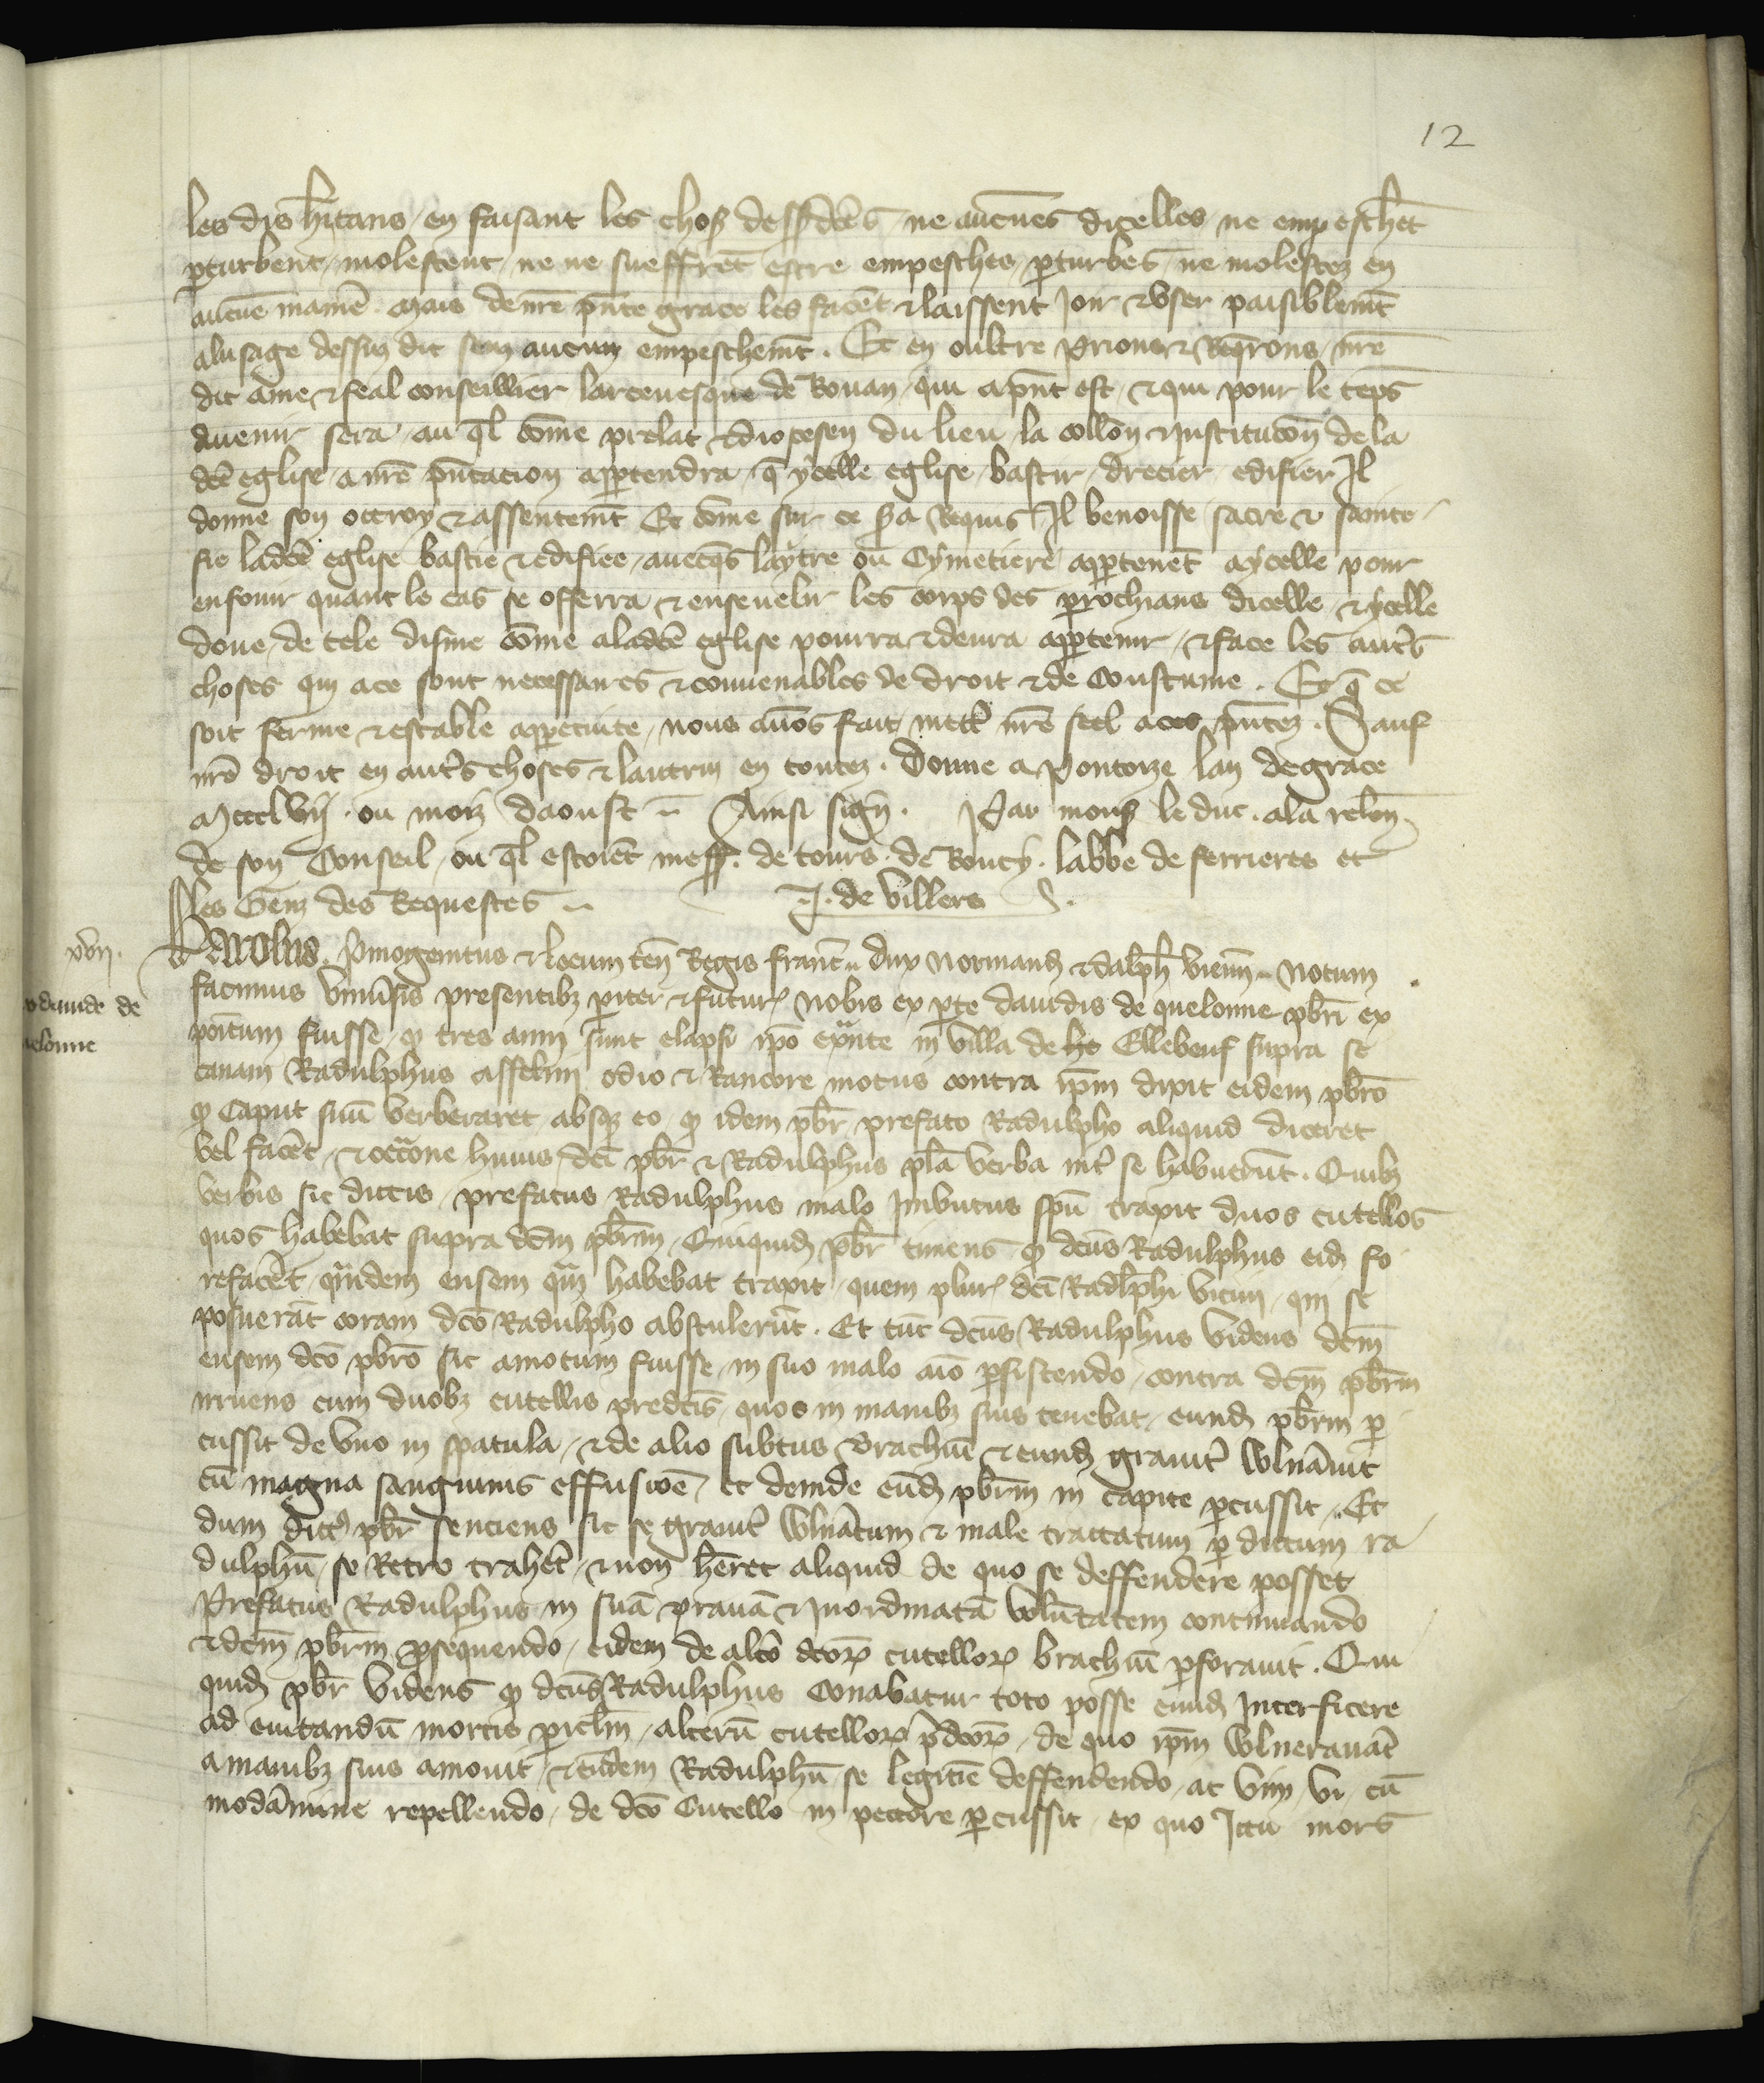 12
les dis h̄itans en faisant les chos dessd̄ces ne aucunes dicelles ne empesch̄et
p̱turbent molestent ne ne sueffrēt estre empeschés p̱turbes ne molestez en
aucūe maniē mais de nr̄e pn̄te grace les facēt & laissent Joir & vser paisiblemt̄
alusage dessus dit senz aucun empeschemt̄. Et en oultre prions & Req̄rons nr̄e
dit ame & feal conseillier larceuesque de Rouan qui apn̄t est & qui pour le tēps
auenir sera au ql̄ cōme prelat & diocesen du lieu la coll̄on & Institucōn de la
dc̄e eglise a nr̄e pn̄tacion app̱tendra q̄ ycelle eglise bastir drecier edifier Il
donne son octroy & assentemt̄ Et cōme sur ce s̄a Requis Il benoisse sacre & saintе
fie ladc̄e eglise bastie & edifiee auecq̄s laytre ou Cymetiere app̱tenēt aycelle pour
enfouir quant le cas se offerra & enseuelir les corps des p̱rochians dicelle & ycelle
doue de tele disme cōme aladc̄e eglise pourra & deura app̱tenir & face les autr̄s
choses qui ace sont necessaires & conuenables de droit & de Coustume. Et q̄ ce
soit ferme & estable app̱etuite nous auōs fait mett̄ nr̄e seel aces pn̄tez. Sauf
nr̄e droit en autr̄s choses & lautruy en toutez. Donne a Pontoize lan de grace
Mccclvij. ou mois daoust Ainsi sign̄. Par mons le duc. ala rel̄on
de son Conseil ou ql̄ estoiēt mess. de tours. de Roucy. labbe de ferrieres et
les Genz des Requestes J. de Villers S.
xvij.
dauide de
elonne
Karolus. Primogenitus & locum ten̄ Regis franc̄ dux Normand & dalph̄ vienn̄ Notum
facimus vniu̾sis presentibz p̱iter & futur̄ nobis ex p̱te dauidis de quelonne pbr̄i ex
poītum fuisse q̄ tres anni sunt elapsi ip̄o exn̄te in villa de ho Ellebeuf supra se
canam Radulphus asselini odio & Rancore motus contra ip̄m dixit eidem pbr̄o
q̄ Caput suū verberaret absqz eo q̄ idem pbr̄ prefato Radulpho aliquid diceret
vel facēt & occ̄one huius dc̄i pbr̄ & Radulphus pl̄a verba int̄ se habuerūt. Quibz
verbis sic dictis prefatus Radulphus malo Imbutus spū traxit duos cutellos
quos habebat supra dc̄m pbr̄m Quiquid pbr̄ timens q̄ dc̄us Radulphus eid fo
refacēt quendem ensem quē habebat traxit quem plur̄ dc̄i Radl̄phi vicini qui se
posuerāt coram dc̄o Radulpho abstulerūt. Et tūc dc̄us Radulphus videns dc̄m
ensem dc̄o pbr̄o sic amotum fuisse in suo malo aīo p̱sistendo contra dc̄m pbr̄m
irruens cum duobz cutellis predc̄is quos in manibz suis tenebat eund pbr̄m p̱
cussit de vno in spatula & de alio subtus brachiū & eund grauit̄ vuln̄auit
cū magna sanguinis effusiōe et deinde eūd pbr̄m in capite p̱cussit Et
dum dict̄ pbr̄ senciens sic se grauit̄ vuln̄atum & male tractatum p̱ dictum ra
dulphū se Retro trahēt & non h̄eret aliquid de quo se deffendere posset
Prefatus Radulphus in suā prauā & Inordinatā volūtatem continuando
& dc̄m pbr̄m p̱sequendo eidem de alt̄o dc̄or̄ cutellor̄ brachiū p̱forauit. Qui
quid pbr̄ videns q̄ dc̄us Radulphus Conabatur toto posse eund Interficere
ad euitandū mortis p̱icl̄m alterū cutellor̄ p̄dc̄or̄ de quo ip̄m vulnerauāt
a manibz suis amouit & eūdem Radulphū se legitīe deffendendo ac vim vi cū
modāmine repellendo de dc̄o Cutello in pectore p̱cussit ex quo Ictu mors